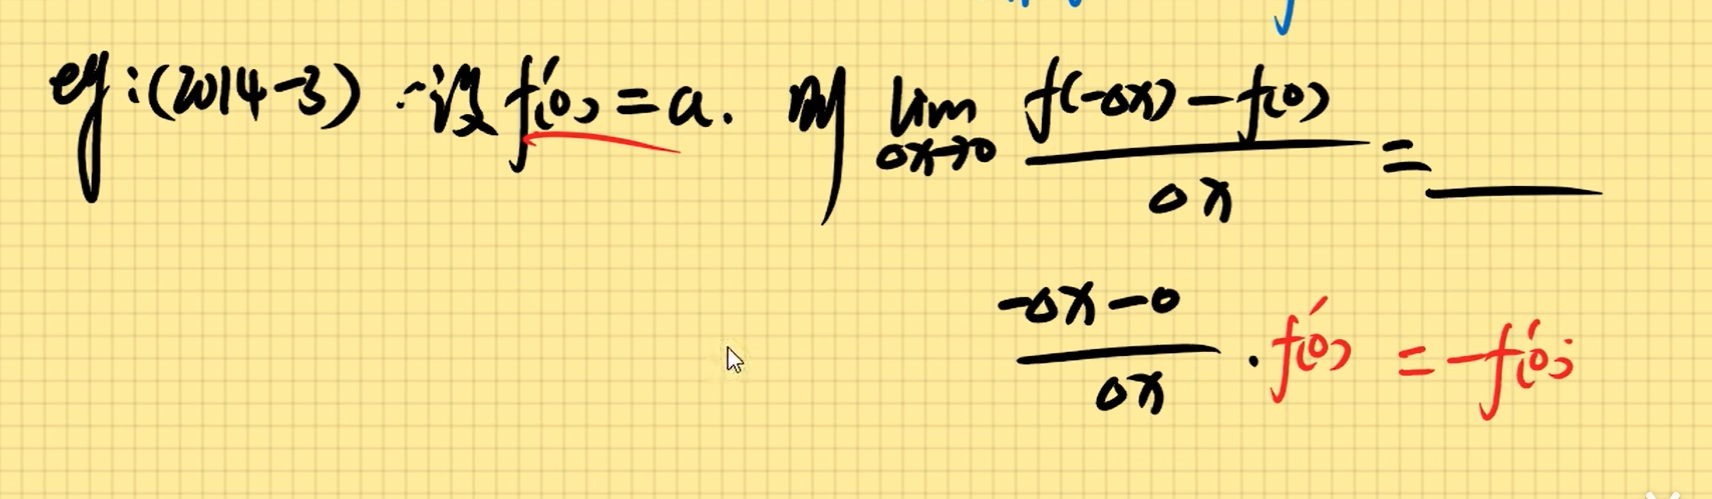 eg:(2014-3) 设 f'(0)=a. 则 lim Δx→0 f(-Δx)-f(0) / Δx = ____
-Δx-0 / Δx · f'(0) = -f'(0)